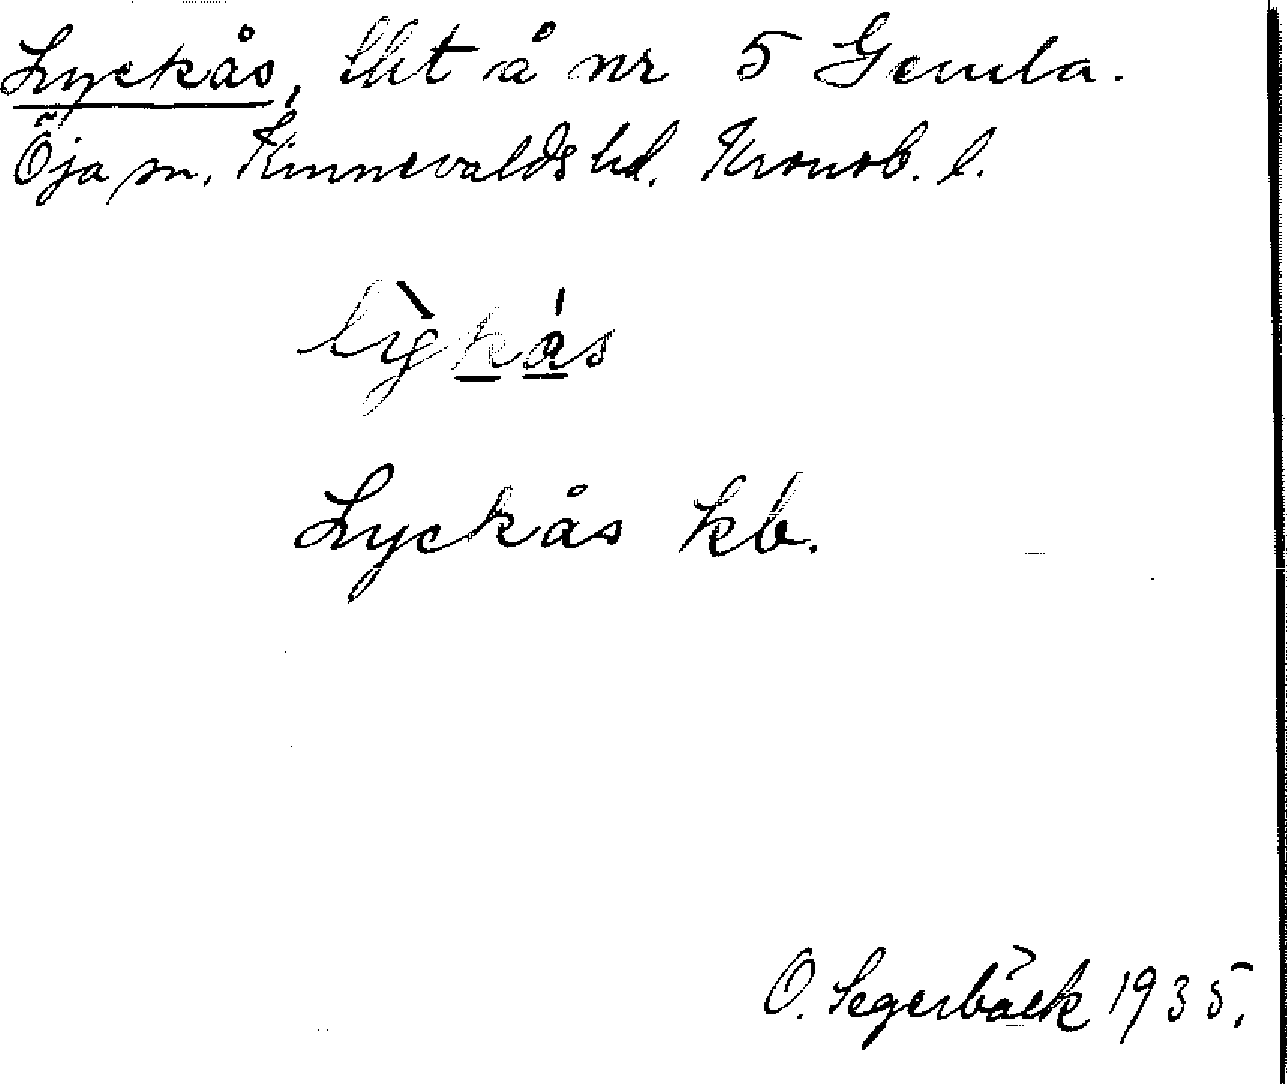 Lyckås, lht å nr 5 Gemla.
Öja sn. Kinnevalds hd. Kronob. l.
lỳkås
Lyckås kb.
O. Segerbäck 1935.